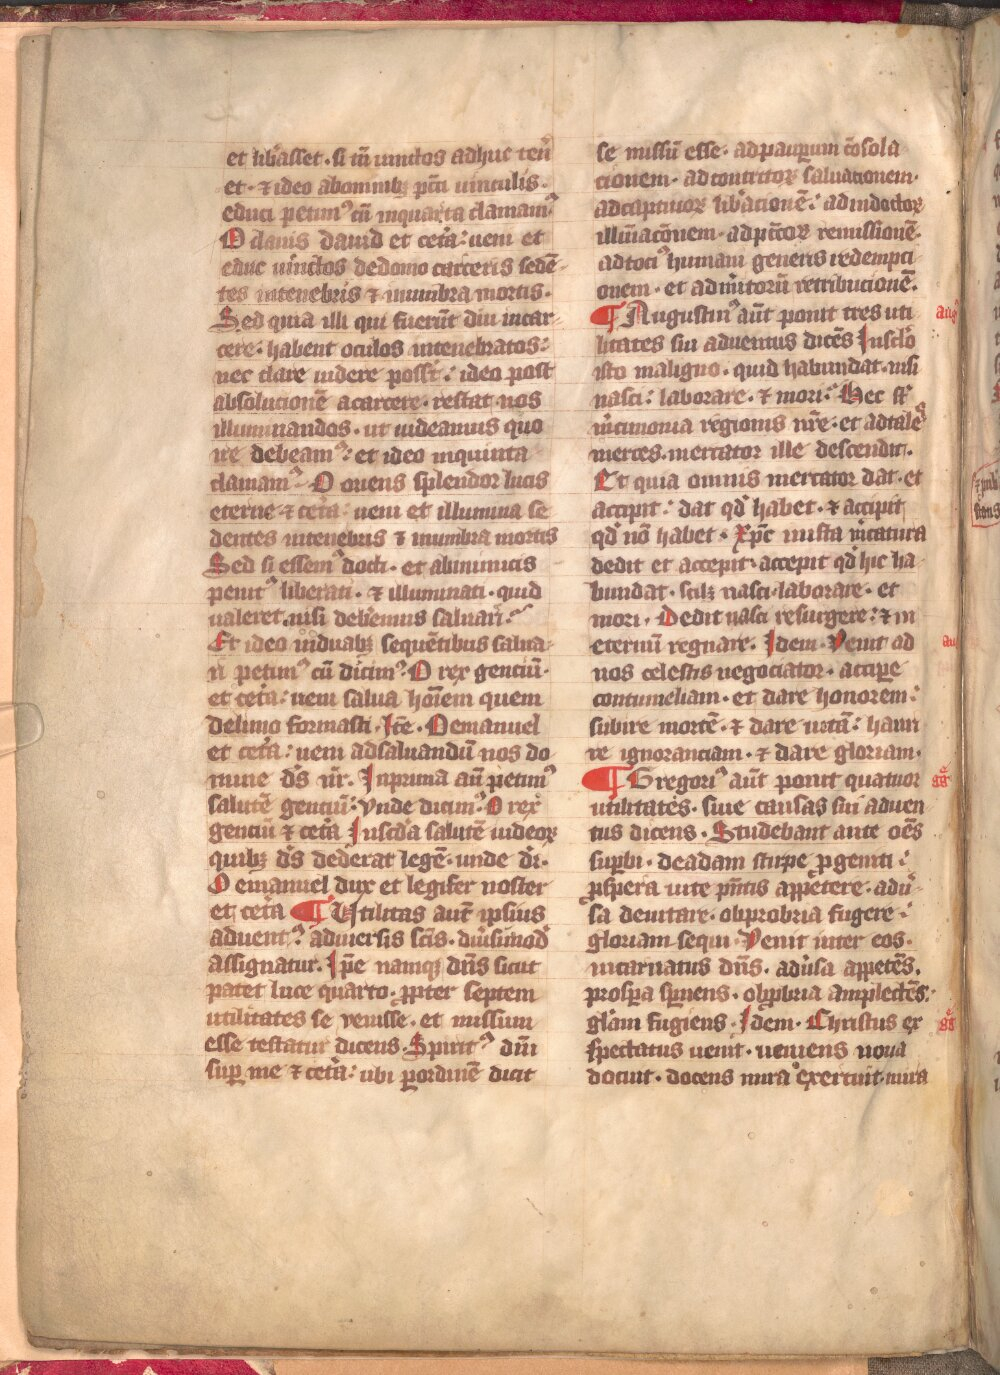 et lib̾asset · si tn̄ uinctos adhuc ten̾
et · ⁊ ideo abomnibꝫ pctī uinculis ·
educi petimꝰ cū inquarta clamamꝰ
O clauis dauid et cet̾a : ueni et
educ uinctos dedomo carceris sedē-
tes intenebris ⁊ inumbra mortis ·
Sed quia illi qui fuerūt diu incar-
cere · habent oculos intenebratos :
nec clare uidere possēt : ideo post
absolucionē acarcere · restat nos
illuminandos · ut uideamus quo
ire debeamꝰ : et ideo inquinta
clamamꝰ · O oriens splendor lucis
eterne ⁊ cet̾a : ueni et illumina se
dentes intenebris ⁊ inumbra mortis
Sed si essemꝰ docti · et abinimicis
penitꝰ liberati · ⁊ illuminati · quid
ualeret nisi deb̾emus saluari :
Et ideo induabꝫ sequētibus salua-
ri petimꝰ cū dicimꝰ O rex genciū ·
et cet̾a : ueni salua hoīem quem
delimo formasti · Itē · O emanuel
et cet̾a : ueni adsaluandū nos do
mine ds̄ nr̄ · Inprima aūt petimꝰ
salutē genciū : vnde dicimꝰ O rex
genciū ⁊ cet̾a Inscd̾a salutē iudeoꝝ
quibꝫ ds̄ dederat legē · unde dr̄ ·
O emanuel dux et legifer noster
et cet̾a ¶ Utilitas aut̄ ipsius
aduentꝰ adiuersis scīs · diu̾simod̾
assignatur · Ipē namqꝫ dn̄s sicut
patet luce quarto · ꝓpter septem
utilitates se venisse · et missum
esse testatur dicens · Spiritꝰ dn̄i
sup̄ me ⁊ cet̾a : ubi ꝑordinē dicit
se missū esse · adpauꝑum cōsola
cionem · adcontritoꝝ saluacionem ·
adcaptiuoꝝ lib̾acionē : adindoctoꝝ
illūiacōnem · adpctōꝝ remissionē ·
adtociꝰ humani generis redempci
onem · et adm̾itorū retribucionē ·
¶ Augustinꝰ aūt ponit tres uti
litates sui aduentus dicēs Insclo̾
isto maligno · quid habundat · nisi
nasci : laborare · ⁊ mori : Hec st̄
m̾cimonia regionis nr̄e · et adtaleˢ
merces · mercator ille descendit ·
Et quia omnis mercator dat · et
accipit : dat qd̾ habet · ⁊ accipit
qd̾ nō habet · Xpc̄ inista m̾catura
dedit et accepit · accepit qd̾ hic ha-
bundat · scilꝫ nasci · laborare · et
mori · Dedit nasci resurgere : ⁊ in
eternū regnare · Idem · Venit ad
nos celestis negociator · accipe
contumeliam · et dare honorem :
subire mortē · ⁊ dare uitā : hauri
re ignoranciam · ⁊ dare gloriam ·
¶ Gregoriꝰ aūt ponit quatuor
utilitates · siue causas sui aduen
tus dicens · Studebant ante oēs
suꝑbi · deadam stirpe ꝓgeniti :
ꝓspera uite pn̄tis appetere · adu̾
sa deuitare · obprobria fugere :
gloriam sequi · Venit inter eos ·
incarnatus dn̄s · adu̾sa appetēs ·
prosꝑa sꝑnens · obꝓbria amplectēs ·
gl̄am fugiens · Idem · Christus ex
spectatus uenit · ueniens noua
docuit · docens mira exercuit · mira
augꝰ
au
gg̾
gg̾